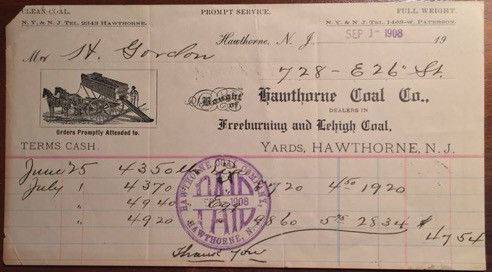 CLEAN COAL. PROMPT SERVICE. FULL WEIGHT.
N. Y. & N. J. TEL. 2343 HAWTHORNE. N. Y. & N. J. TEL. 1463-W. PATERSON.
Hawthorne, N. J. SEP 1- 1908 19
Mr H. Gordon
728 - E 26 St.
Bought of Hawthorne Coal Co.,
DEALERS IN
Freeburning and Lehigh Coal.
Orders Promptly Attended to.
TERMS CASH. YARDS, HAWTHORNE, N. J.
June 25 4350
July 1 4370 8720 4 50 19 20
" 4940 Egg
" 4920 9860 5 75 28 34 $
47 54
HAWTHORNE COAL COMPANY,
PAID
1908
HAWTHORNE, N. J.
Thank You